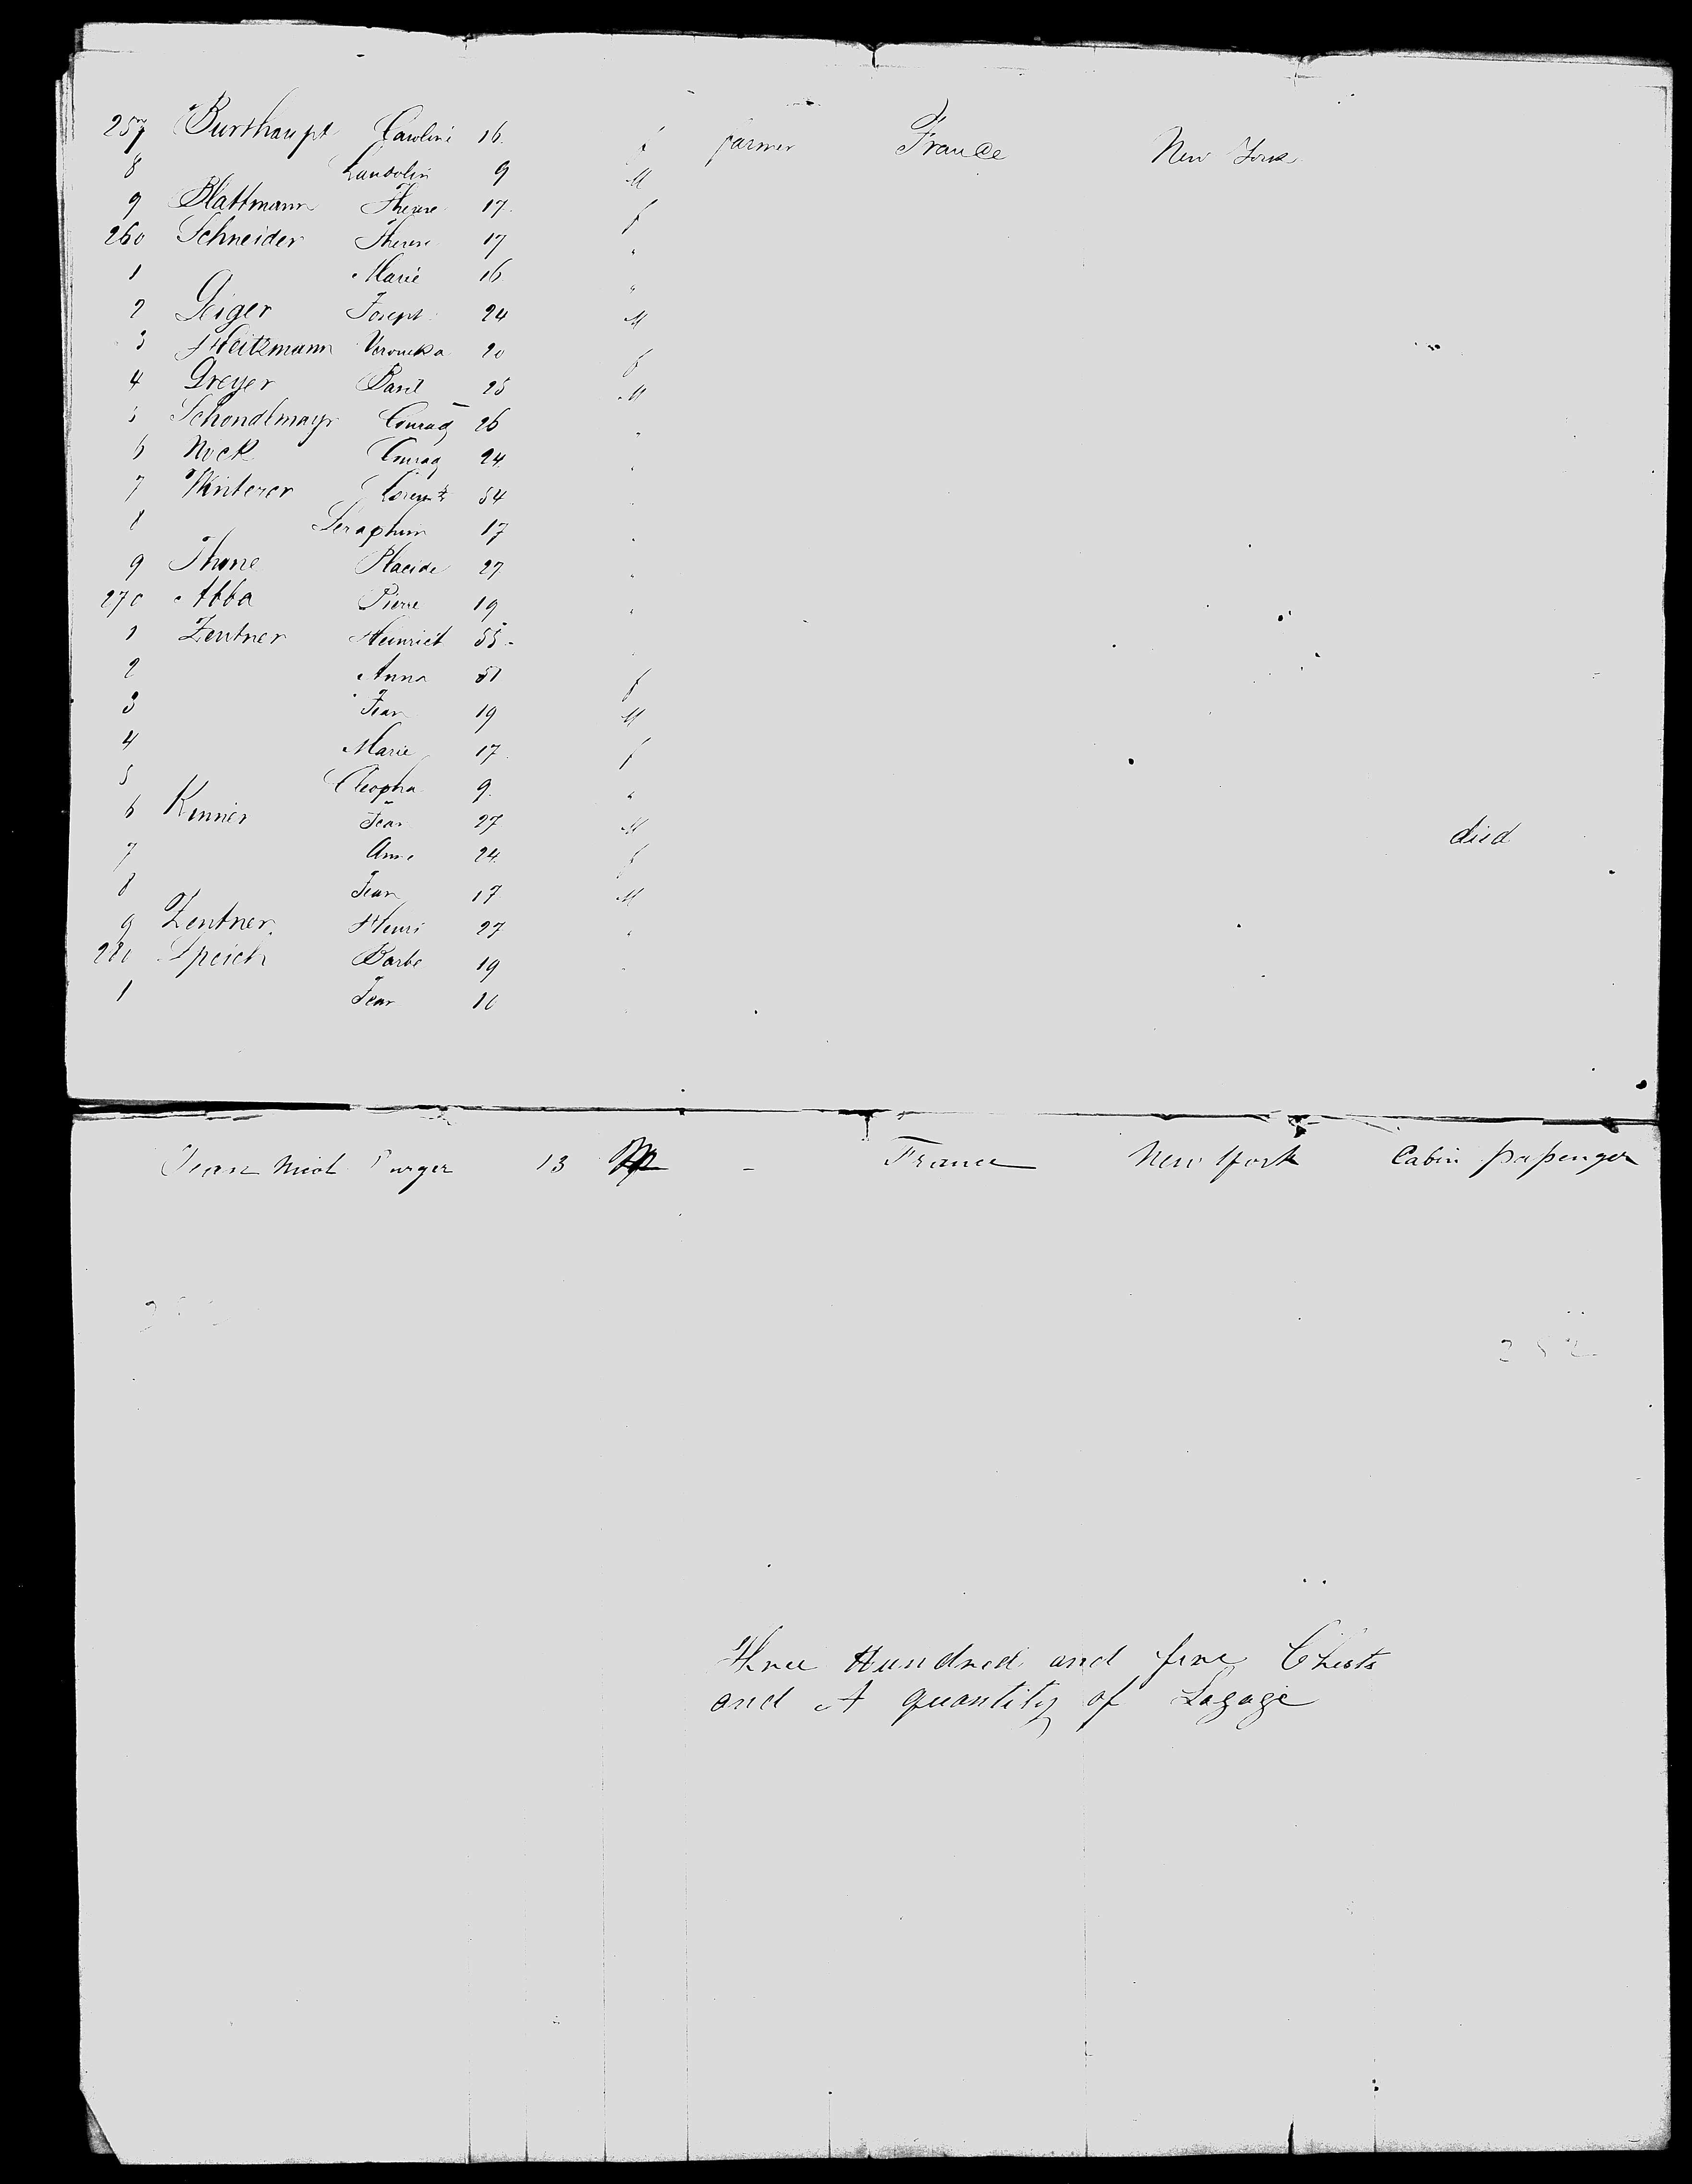 257 Burthaupt Caroline 16 f farmer France New York
8 Landolin 9 M
9 Blattmann Therese 17 f
260 Schneider Therese 17 "
1 Marie 16 "
2 Geiger Joseph 24 M
3 Heitzmann Veronika 20 f
4 Greyer Basil 25 M
5 Schondlmayr Conrad 26 "
6 Nock Conrad 24 "
7 Winterer Lorentz 54
8 Seraphim 17 "
9 Thone Placide 27 "
270 Abba Pierre 19 "
1 Zentner Heinrich 55
2 Anna 51 f
3 Jean 19 M
4 Marie 17 f
5 Cleopha 9 "
6 Kenner Jean 27 M died
7 Anne 24 f
8 Jean 17 M
9 Zentner Henri 27 "
280 Speich Barbe 19
1 Jean 10
Jean 13 M - France New York Cabin passenger
282
Three Hundred and five Chests
and A quantity of Lagage